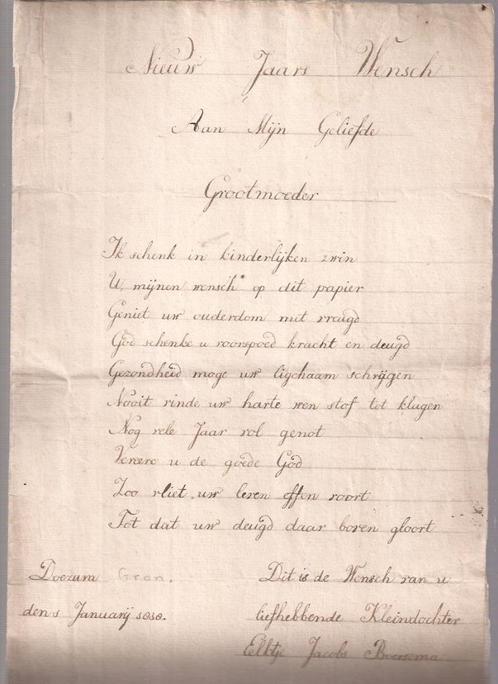 Nieuw Jaars Wensch
Aan Mijn Geliefde
Grootmoeder
Ik schenk in kinderlijken zwin
U mijnen wensch op dit papier
Geniet uw ouderdom met vreugd
God schenke u voorspoed kracht en deugd
Gezondheid moge uw ligchaam schrijgen
Nooit vinde uw harte wen stof tot klugen
Nog vele Jaar vol genot
Verere u de goede God
Zoo vliet uw leven effen voort
Tot dat uw deugd daar boven gloort
Doezum Gron.
den 1 Januarij 1010.
Dit is de Wensch van u
liefhebbende Kleindochter
Elktje Jacobs Boersema